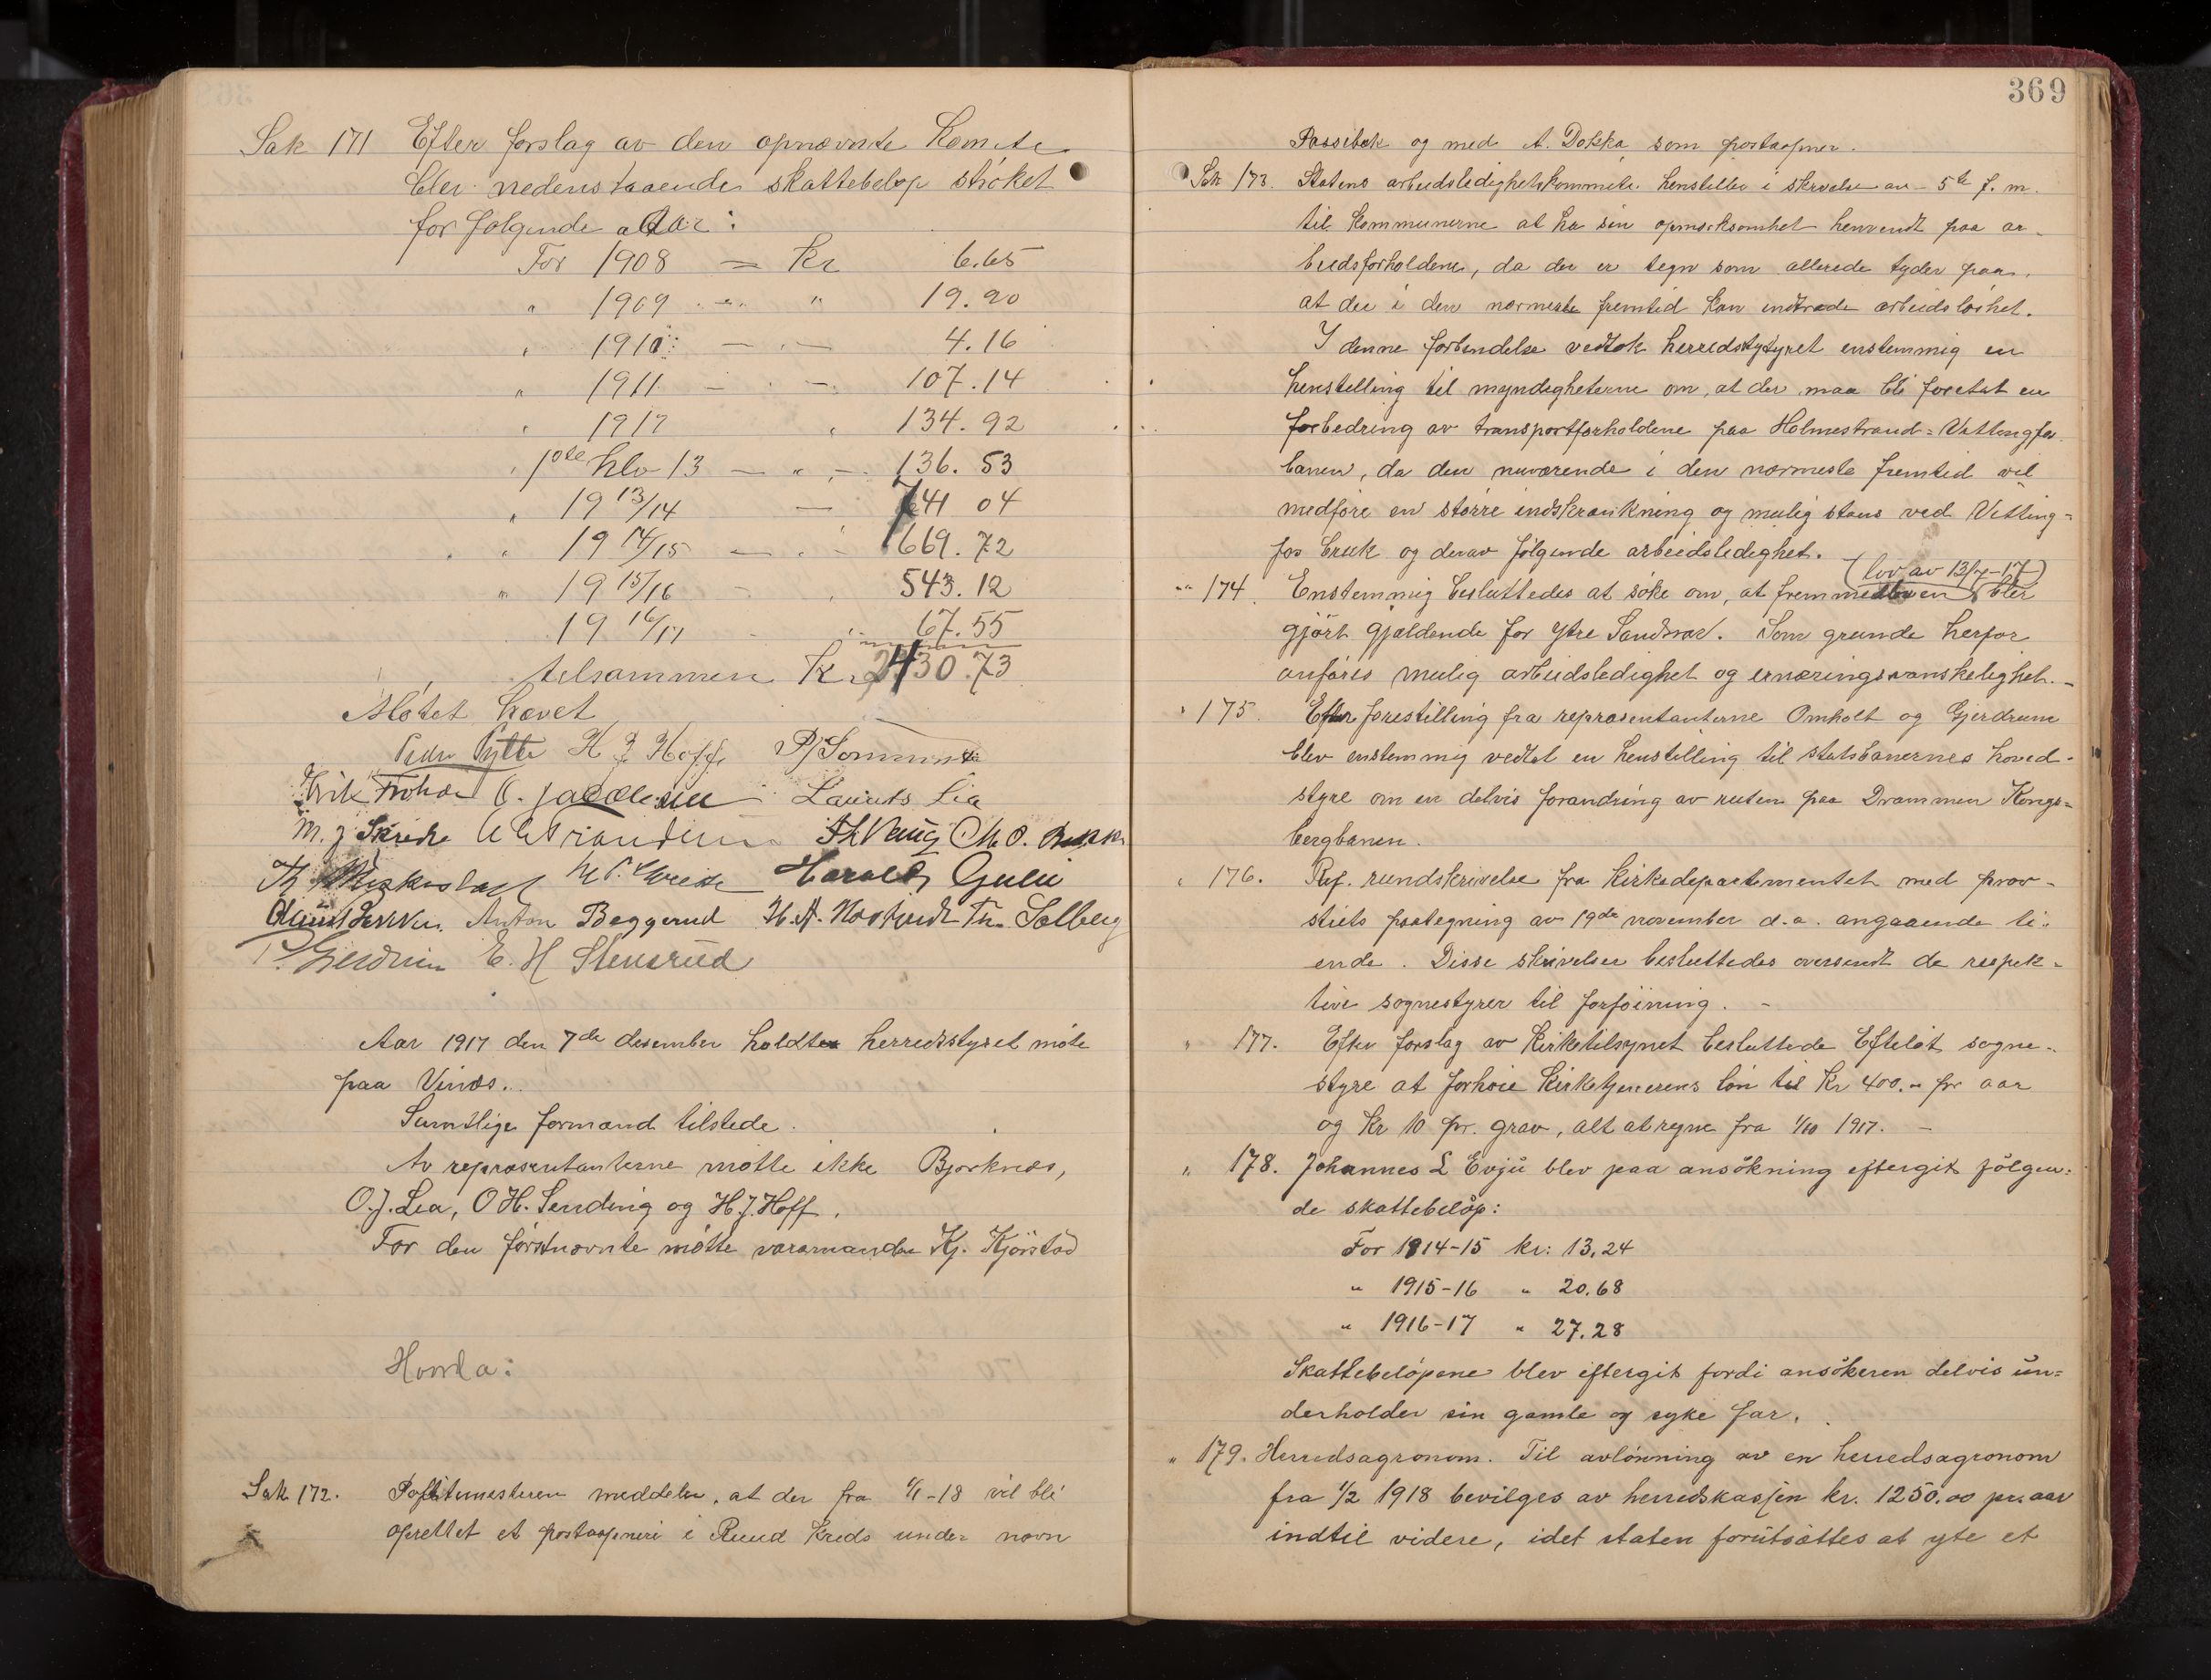 Sak 171 Efter forslag av den opnævnte Komite
blev nedenstaaende skattebeløp strøket
for følgende aar:
For 1908 — Kr 6.65
" 1909 - " - " 19.90
" 1910 — " — 4.16
" 1911 — " — 107.14
" 1912 " 134.92
" 1ste hlv 13 — " — 136.53
" 19 13/14 — 741 04
" 19 14/15 — " — 669.72
" 19 15/16 — " 543.12
19 16/17 - " 67.55
tilsammen Kr. 2430.73
Møtet hævet
H J Hoff
O. Jacobsen Laurits Lia
M. J.
Harald Gulli
Anton Baggerud Th. Solberg
P. Gjerdrum E. H Stensrud
Aar 1917 den 7de desember holdt herredsstyret møte
paa Vinæs.
Samtlige formænd tilstede.
Av repræsentanterne møtte ikke Bjørknæs,
O.J. Lea, O H. Sending og H. J. Hoff.
For den førstnævnte møtte varamanden Kj. Kjørstad
Hvorda:
Sak 172. Postmesteren meddeler, at der fra 1/1-18 vil bli
oprettet et postaapneri i Ruud Kreds under navn
369
Passebæk og med A. Dokka som postaapner.
Sak 173. Statens arbeidsledighetskommite henstiller i skrivelse av 5te f. m.
til Kommunerne at ha sin opmerksomhet henvendt paa ar-
beidsforholdene, da der er tegn som allerede tyder paa,
at der i den nærmeste fremtid kan indtræde arbeidsløshet.
I denne forbindelse vedtok herredstytyret enstemmig en
henstilling til myndigheterne om, at der maa bli foretat en
forbedring av transportforholdene paa Holmestrand=Vittingfos
banen, da den nuværende i den nærmeste fremtid vil
medføre en større indskrænkning og mulig stans ved Vitting=
fos bruk og derav følgende arbeidsledighet.
(lov av 13/7-17)
" 174. Enstemmig besluttedes at søke om, at fremmedloven blir
gjørt gjældende for ytre Sandsvær. Som grunde herfor
anføres mulig arbeidsledighet og ernæringsvanskelighet. -
" 175. Efter forestilling fra repræsentanterne Omholt og Gjerdrum
blev enstemmig vedtat en henstilling til statsbanernes hoved-
styre om en delvis forandring av ruten paa Drammen Kongs=
bergbanen.
" 176. Ref. rundskrivelse fra Kirkedepartementet med prov-
stiets paategning av 19de november d.a. angaaende ti-
ende. Disse skrivelser besluttedes oversendt de respek-
tive sognestyrer til forføining. -
" 177. Efter forslag av Kirketilsynet besluttede Efteløt sogne-
styre at forhøie Kirketjenerens løn til Kr 400.- pr aar
og Kr 10 pr. grav, alt at regne fra 1/10 1917. -
" 178. Johannes L Evju blev paa ansøkning eftergit følgen=
de skattebeløp:
For 1914-15 kr: 13,24
" 1915-16 " 20.68
" 1916-17 " 27.28
Skattebeløpene blev eftergit fordi ansøkeren delvis un=
derholder sin gamle og syke far.
" 179. Herredsagronom. Til avlønning av en herredsagronom
fra 1/2 1918 bevilges av herredskassen kr. 1250,00 pr. aar
indtil videre, idet staten forutsættes at yte et